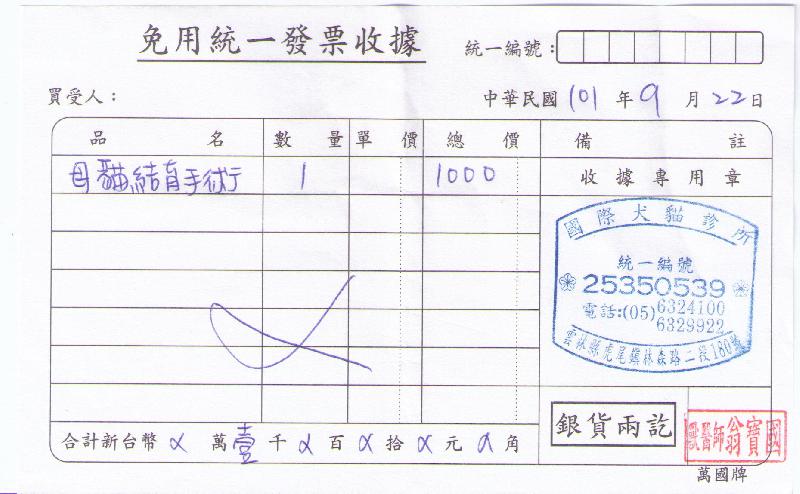 免用統一發票收據
統一編號：
買受人：
中華民國 101 年 9 月 22 日
品名 數量 單價 總價 備註
母貓結育手術行 1 1000 收據專用章
國際犬貓診所
統一編號
25350539
電話:(05)6324100
6329922
雲林縣虎尾鎮林森路二段180號
合計新台幣 α 萬 壹 千 α 百 α 拾 α 元 α 角
銀貨兩訖
獸醫師翁寶國
萬國牌